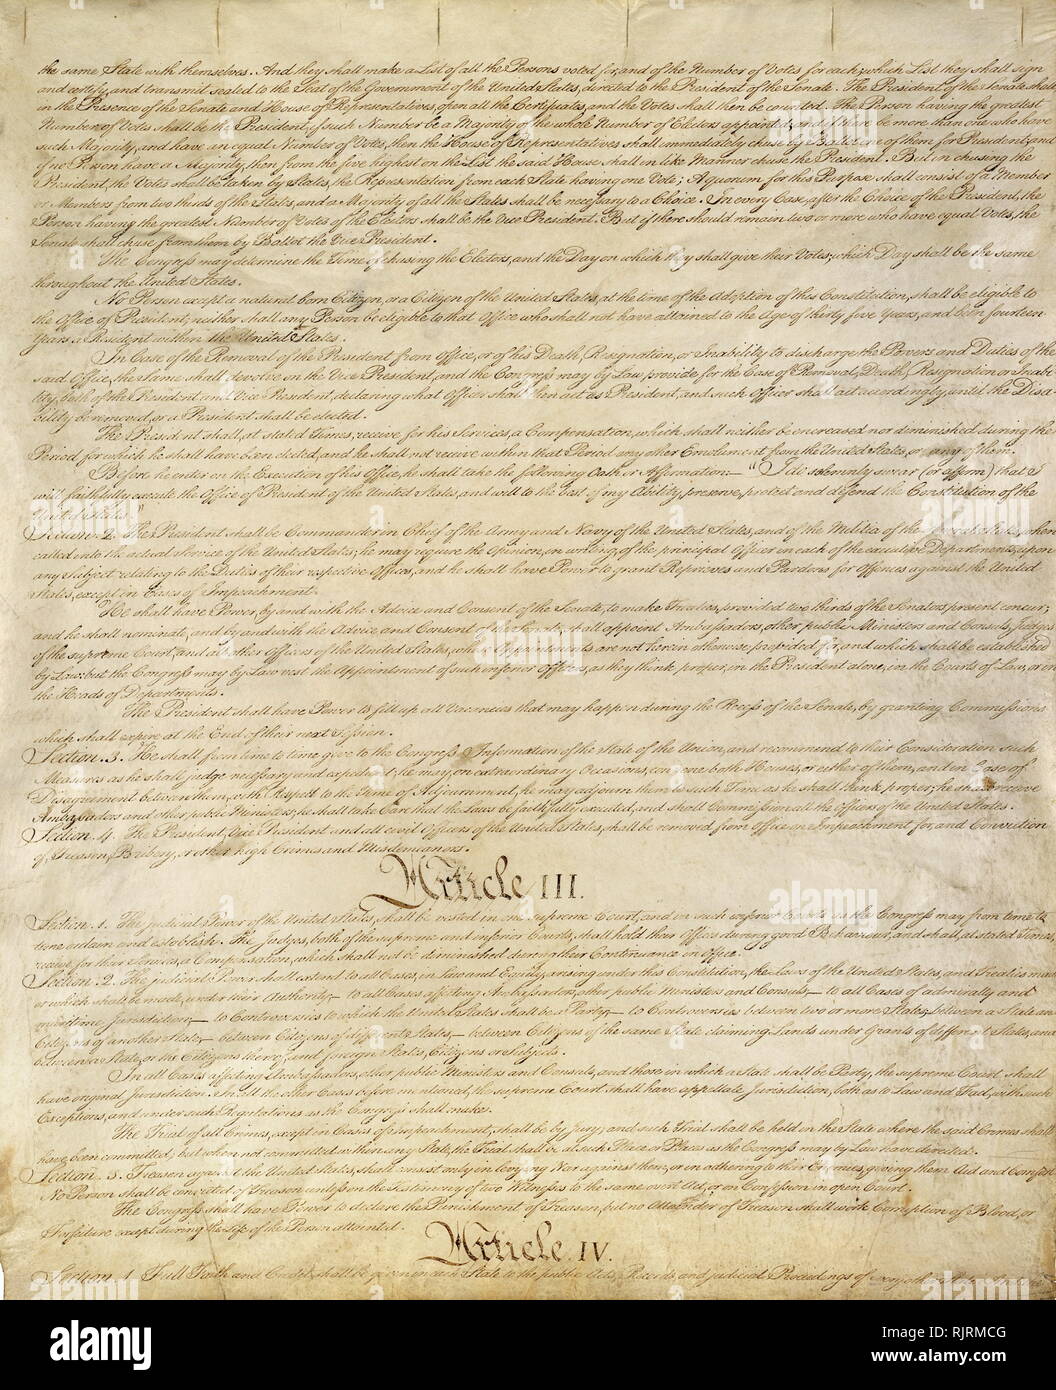 the same State with themselves. And they shall make a List of all the Persons voted for, and of the Number of Votes for each; which List they shall sign
and certify, and transmit sealed to the Seat of the Government of the United States, directed to the President of the Senate. The President of the Senate shall,
in the Presence of the Senate and House of Representatives, open all the Certificates, and the Votes shall then be counted. The Person having the greatest
Number of Votes shall be the President, if such Number be a Majority of the whole Number of Electors appointed; and if there be more than one who have
such Majority, and have an equal Number of Votes, then the House of Representatives shall immediately chuse by Ballot one of them for President; and
if no Person have a Majority, then from the five highest on the List the said House shall in like Manner chuse the President. But in chusing the
President, the Votes shall be taken by States, the Representation from each State having one Vote; A quorum for this Purpose shall consist of a Member
or Members from two thirds of the States, and a Majority of all the States shall be necessary to a Choice. In every Case, after the Choice of the President, the
Person having the greatest Number of Votes of the Electors shall be the Vice President. But if there should remain two or more who have equal Votes, the
Senate shall chuse from them by Ballot the Vice President.
The Congress may determine the Time of chusing the Electors, and the Day on which they shall give their Votes; which Day shall be the same
throughout the United States.
No Person except a natural born Citizen, or a Citizen of the United States, at the time of the Adoption of this Constitution, shall be eligible to
the Office of President; neither shall any Person be eligible to that Office who shall not have attained to the Age of thirty five Years, and been fourteen
Years a Resident within the United States.
In Case of the Removal of the President from Office, or of his Death, Resignation, or Inability to discharge the Powers and Duties of the
said Office, the Same shall devolve on the Vice President, and the Congress may by Law provide for the Case of Removal, Death, Resignation or Inabi-
lity, both of the President and Vice President, declaring what Officer shall then act as President, and such Officer shall act accordingly, until the Disa-
bility be removed, or a President shall be elected.
The President shall, at stated Times, receive for his Services, a Compensation, which shall neither be encreased nor diminished during the
Period for which he shall have been elected, and he shall not receive within that Period any other Emolument from the United States, or any of them.
Before he enter on the Execution of his Office, he shall take the following Oath or Affirmation:— "I do solemnly swear (or affirm) that I
will faithfully execute the Office of President of the United States, and will to the best of my Ability, preserve, protect and defend the Constitution of the
United States."
Section. 2. The President shall be Commander in Chief of the Army and Navy of the United States, and of the Militia of the several States, when
called into the actual Service of the United States; he may require the Opinion, in writing, of the principal Officer in each of the executive Departments, upon
any Subject relating to the Duties of their respective Offices, and he shall have Power to grant Reprieves and Pardons for Offences against the United
States, except in Cases of Impeachment.
He shall have Power, by and with the Advice and Consent of the Senate, to make Treaties, provided two thirds of the Senators present concur;
and he shall nominate, and by and with the Advice and Consent of the Senate, shall appoint Ambassadors, other public Ministers and Consuls, Judges
of the supreme Court, and all other Officers of the United States, whose Appointments are not herein otherwise provided for, and which shall be established
by Law: but the Congress may by Law vest the Appointment of such inferior Officers, as they think proper, in the President alone, in the Courts of Law, or in
the Heads of Departments.
The President shall have Power to fill up all Vacancies that may happen during the Recess of the Senate, by granting Commissions
which shall expire at the End of their next Session.
Section. 3. He shall from time to time give to the Congress Information of the State of the Union, and recommend to their Consideration such
Measures as he shall judge necessary and expedient; he may, on extraordinary Occasions, convene both Houses, or either of them, and in Case of
Disagreement between them, with Respect to the Time of Adjournment, he may adjourn them to such Time as he shall think proper; he shall receive
Ambassadors and other public Ministers; he shall take Care that the Laws be faithfully executed, and shall Commission all the Officers of the United States.
Section. 4. The President, Vice President and all civil Officers of the United States, shall be removed from Office on Impeachment for, and Conviction
of, Treason, Bribery, or other high Crimes and Misdemeanors.
Article III.
Section. 1. The judicial Power of the United States, shall be vested in one supreme Court, and in such inferior Courts as the Congress may from time to
time ordain and establish. The Judges, both of the supreme and inferior Courts, shall hold their Offices during good Behaviour, and shall, at stated Times,
receive for their Services, a Compensation, which shall not be diminished during their Continuance in Office.
Section. 2. The judicial Power shall extend to all Cases, in Law and Equity, arising under this Constitution, the Laws of the United States, and Treaties made,
or which shall be made, under their Authority;— to all Cases affecting Ambassadors, other public Ministers and Consuls;— to all Cases of admiralty and
maritime Jurisdiction;— to Controversies to which the United States shall be a Party;— to Controversies between two or more States;— between a State and
Citizens of another State;— between Citizens of different States,— between Citizens of the same State claiming Lands under Grants of different States, and
between a State, or the Citizens thereof, and foreign States, Citizens or Subjects.
In all Cases affecting Ambassadors, other public Ministers and Consuls, and those in which a State shall be Party, the supreme Court shall
have original Jurisdiction. In all the other Cases before mentioned, the supreme Court shall have appellate Jurisdiction, both as to Law and Fact, with such
Exceptions, and under such Regulations as the Congress shall make.
The Trial of all Crimes, except in Cases of Impeachment, shall be by Jury; and such Trial shall be held in the State where the said Crimes shall
have been committed; but when not committed within any State, the Trial shall be at such Place or Places as the Congress may by Law have directed.
Section. 3. Treason against the United States, shall consist only in levying War against them, or in adhering to their Enemies, giving them Aid and Comfort.
No Person shall be convicted of Treason unless on the Testimony of two Witnesses to the same overt Act, or on Confession in open Court.
The Congress shall have Power to declare the Punishment of Treason, but no Attainder of Treason shall work Corruption of Blood, or
Forfeiture except during the Life of the Person attainted.
Article. IV.
Section. 1. Full Faith and Credit shall be given in each State to the public Acts, Records, and judicial Proceedings of
alamy
Image ID: RJRMCG
www.alamy.com